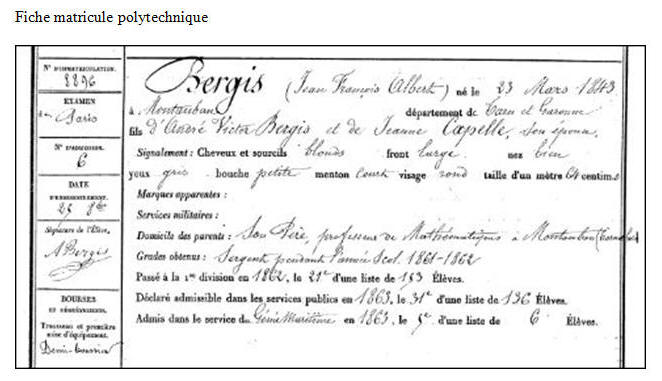 Fiche matricule polytechnique
N° D'IMMATRICULATION.
8896
EXAMEN
de Paris
N° D'ADMISSION
6
DATE
D'ENREGISTREMENT.
25 8bre
Signature de l'Élève,
A Bergis
BOURSES
ET
Trousseau et première
mise d'équipement.
Demi-boursier
Bergis (Jean François Albert) né le 23 Mars 1843
à Montauban département de Tarn et Garonne
fils d'André Victor Bergis et de Jeanne Capelle, son épouse
Signalement : Cheveux et sourcils blonds front large nez bien
yeux gris bouche petite menton court visage rond taille d'un mètre 64 centim.s
Marques apparentes :
Services militaires :
Domicile des parents : Son Père, professeur de Mathématiques à Montauban
Grades obtenus : Sergent pendant l'année Scol. 1861-1862
Passé à la 1re division en 1862, le 21e d'une liste de 153 Élèves.
Déclaré admissible dans les services publics en 1863, le 31e d'une liste de 136 Élèves.
Admis dans le service du Génie Maritime en 1863, le 5e d'une liste de 6 Élèves.